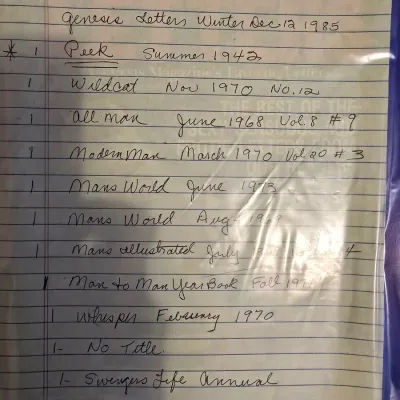 Genesis Letters Winter Dec 12 1985
* 1 Peek Summer 1942
1 Wildcat Nov 1970 No. 12
1 All Man June 1968 Vol. 8 # 9
1 Modern Man March 1970 Vol 20 # 3
1 Mans World June 1973
1 Mans World Aug
1 Mans Illustrated July 4
1 Man to Man Year Book Fall
1 Whisper February 1970
1- No Title.
1- Swingers Life Annual
THE BEST OF THE